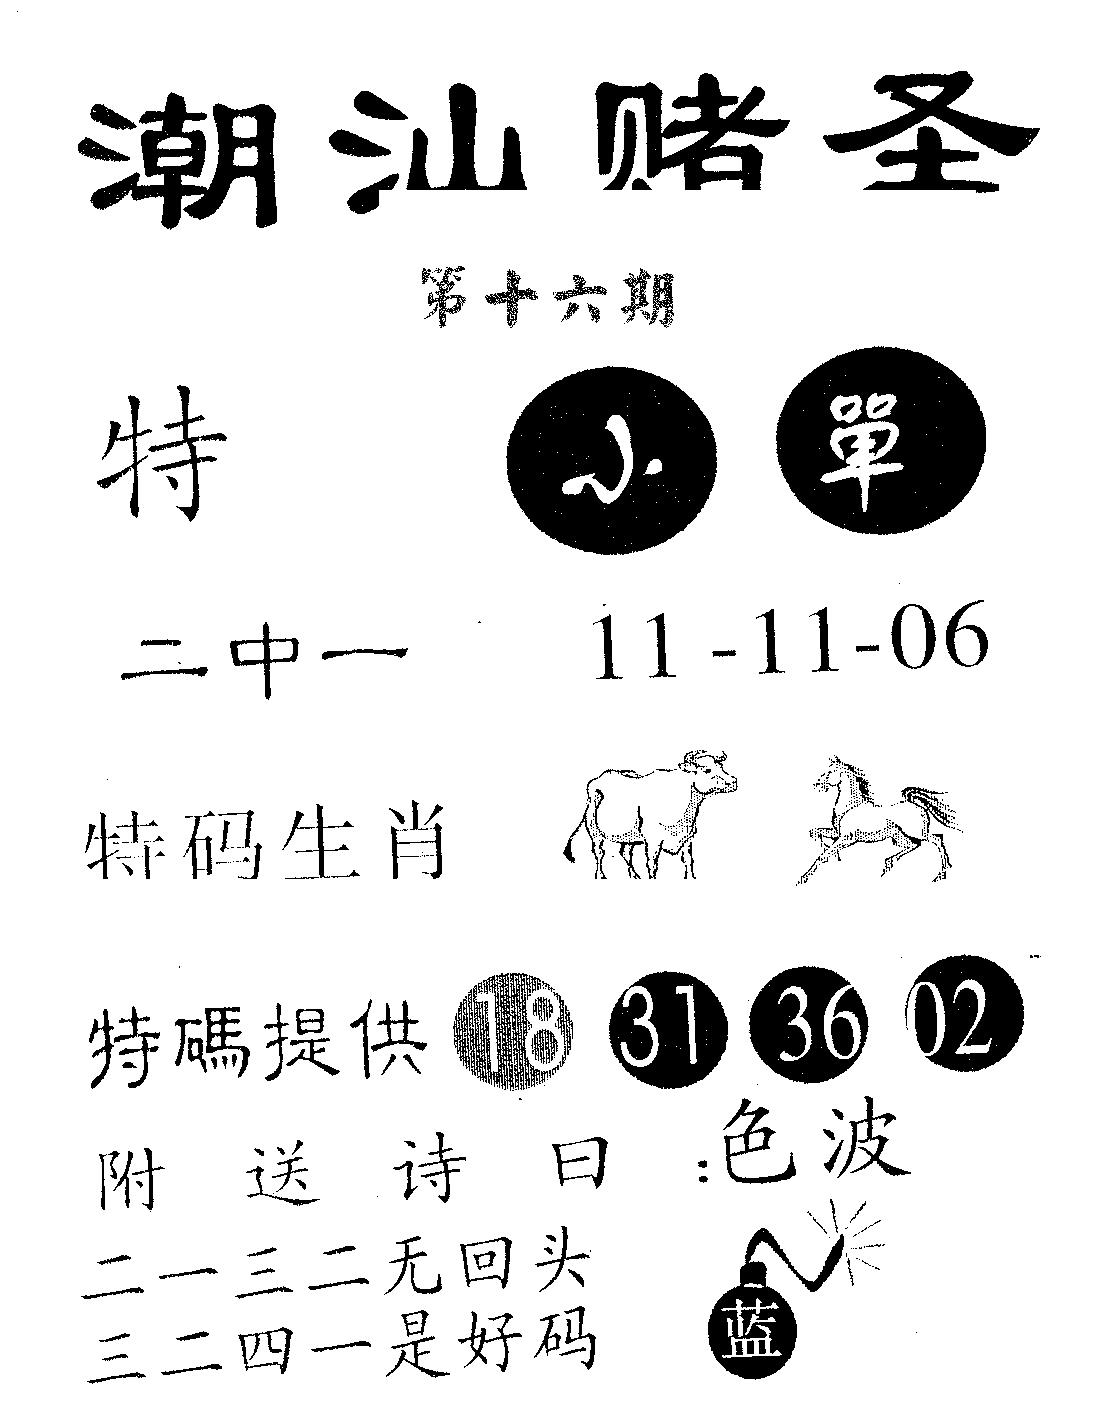 潮汕赌圣
第十六期
特 小 單
二中一 11-11-06
特码生肖
特碼提供 18 31 36 02
附送诗曰:色波
二一三二无回头
三二四一是好码
蓝